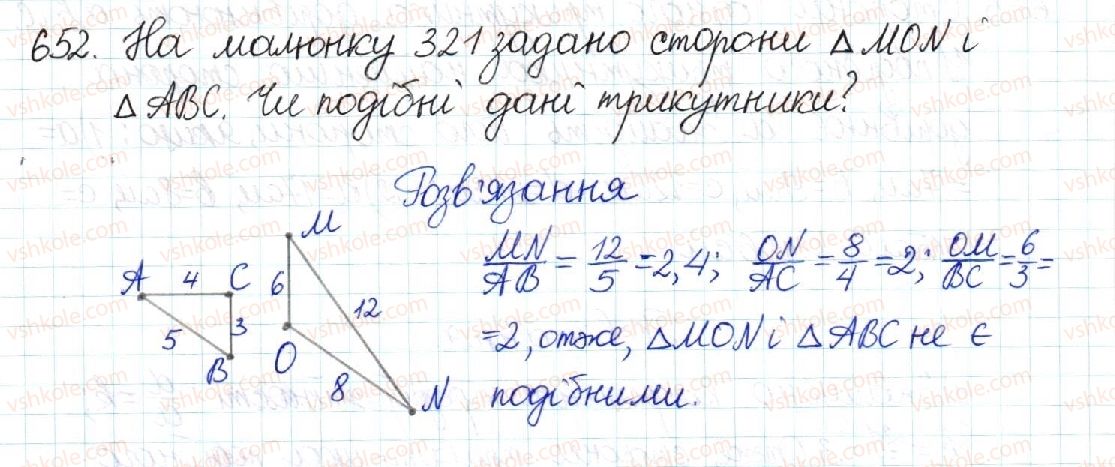 652. На малюнку 321 задано сторони △ MON і
△ ABC. Чи подібні дані трикутники?
Розв'язання
MN/AB = 12/5 = 2,4; ON/AC = 8/4 = 2; OM/BC = 6/3 =
= 2, отже, △ MON і △ ABC не є
подібними.
A 4 C
5 3
B
M
6 12
O
8 N
vshkole.com